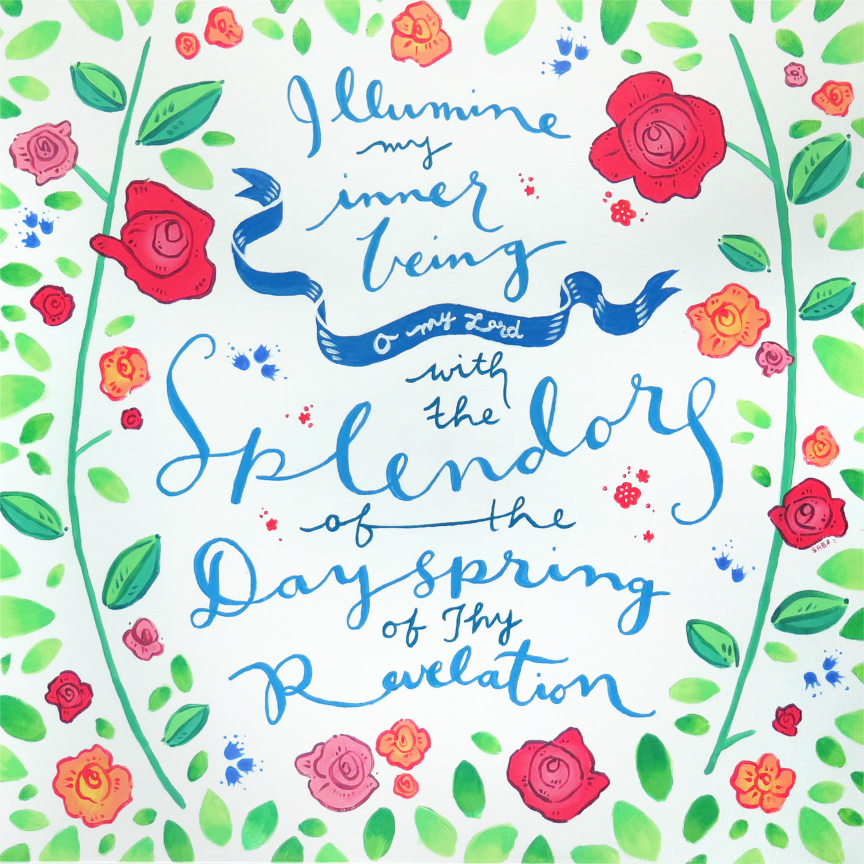 Illumine
my
inner
being
O my Lord
with
the
Splendors
of the
Dayspring
of Thy
Revelation
SABA